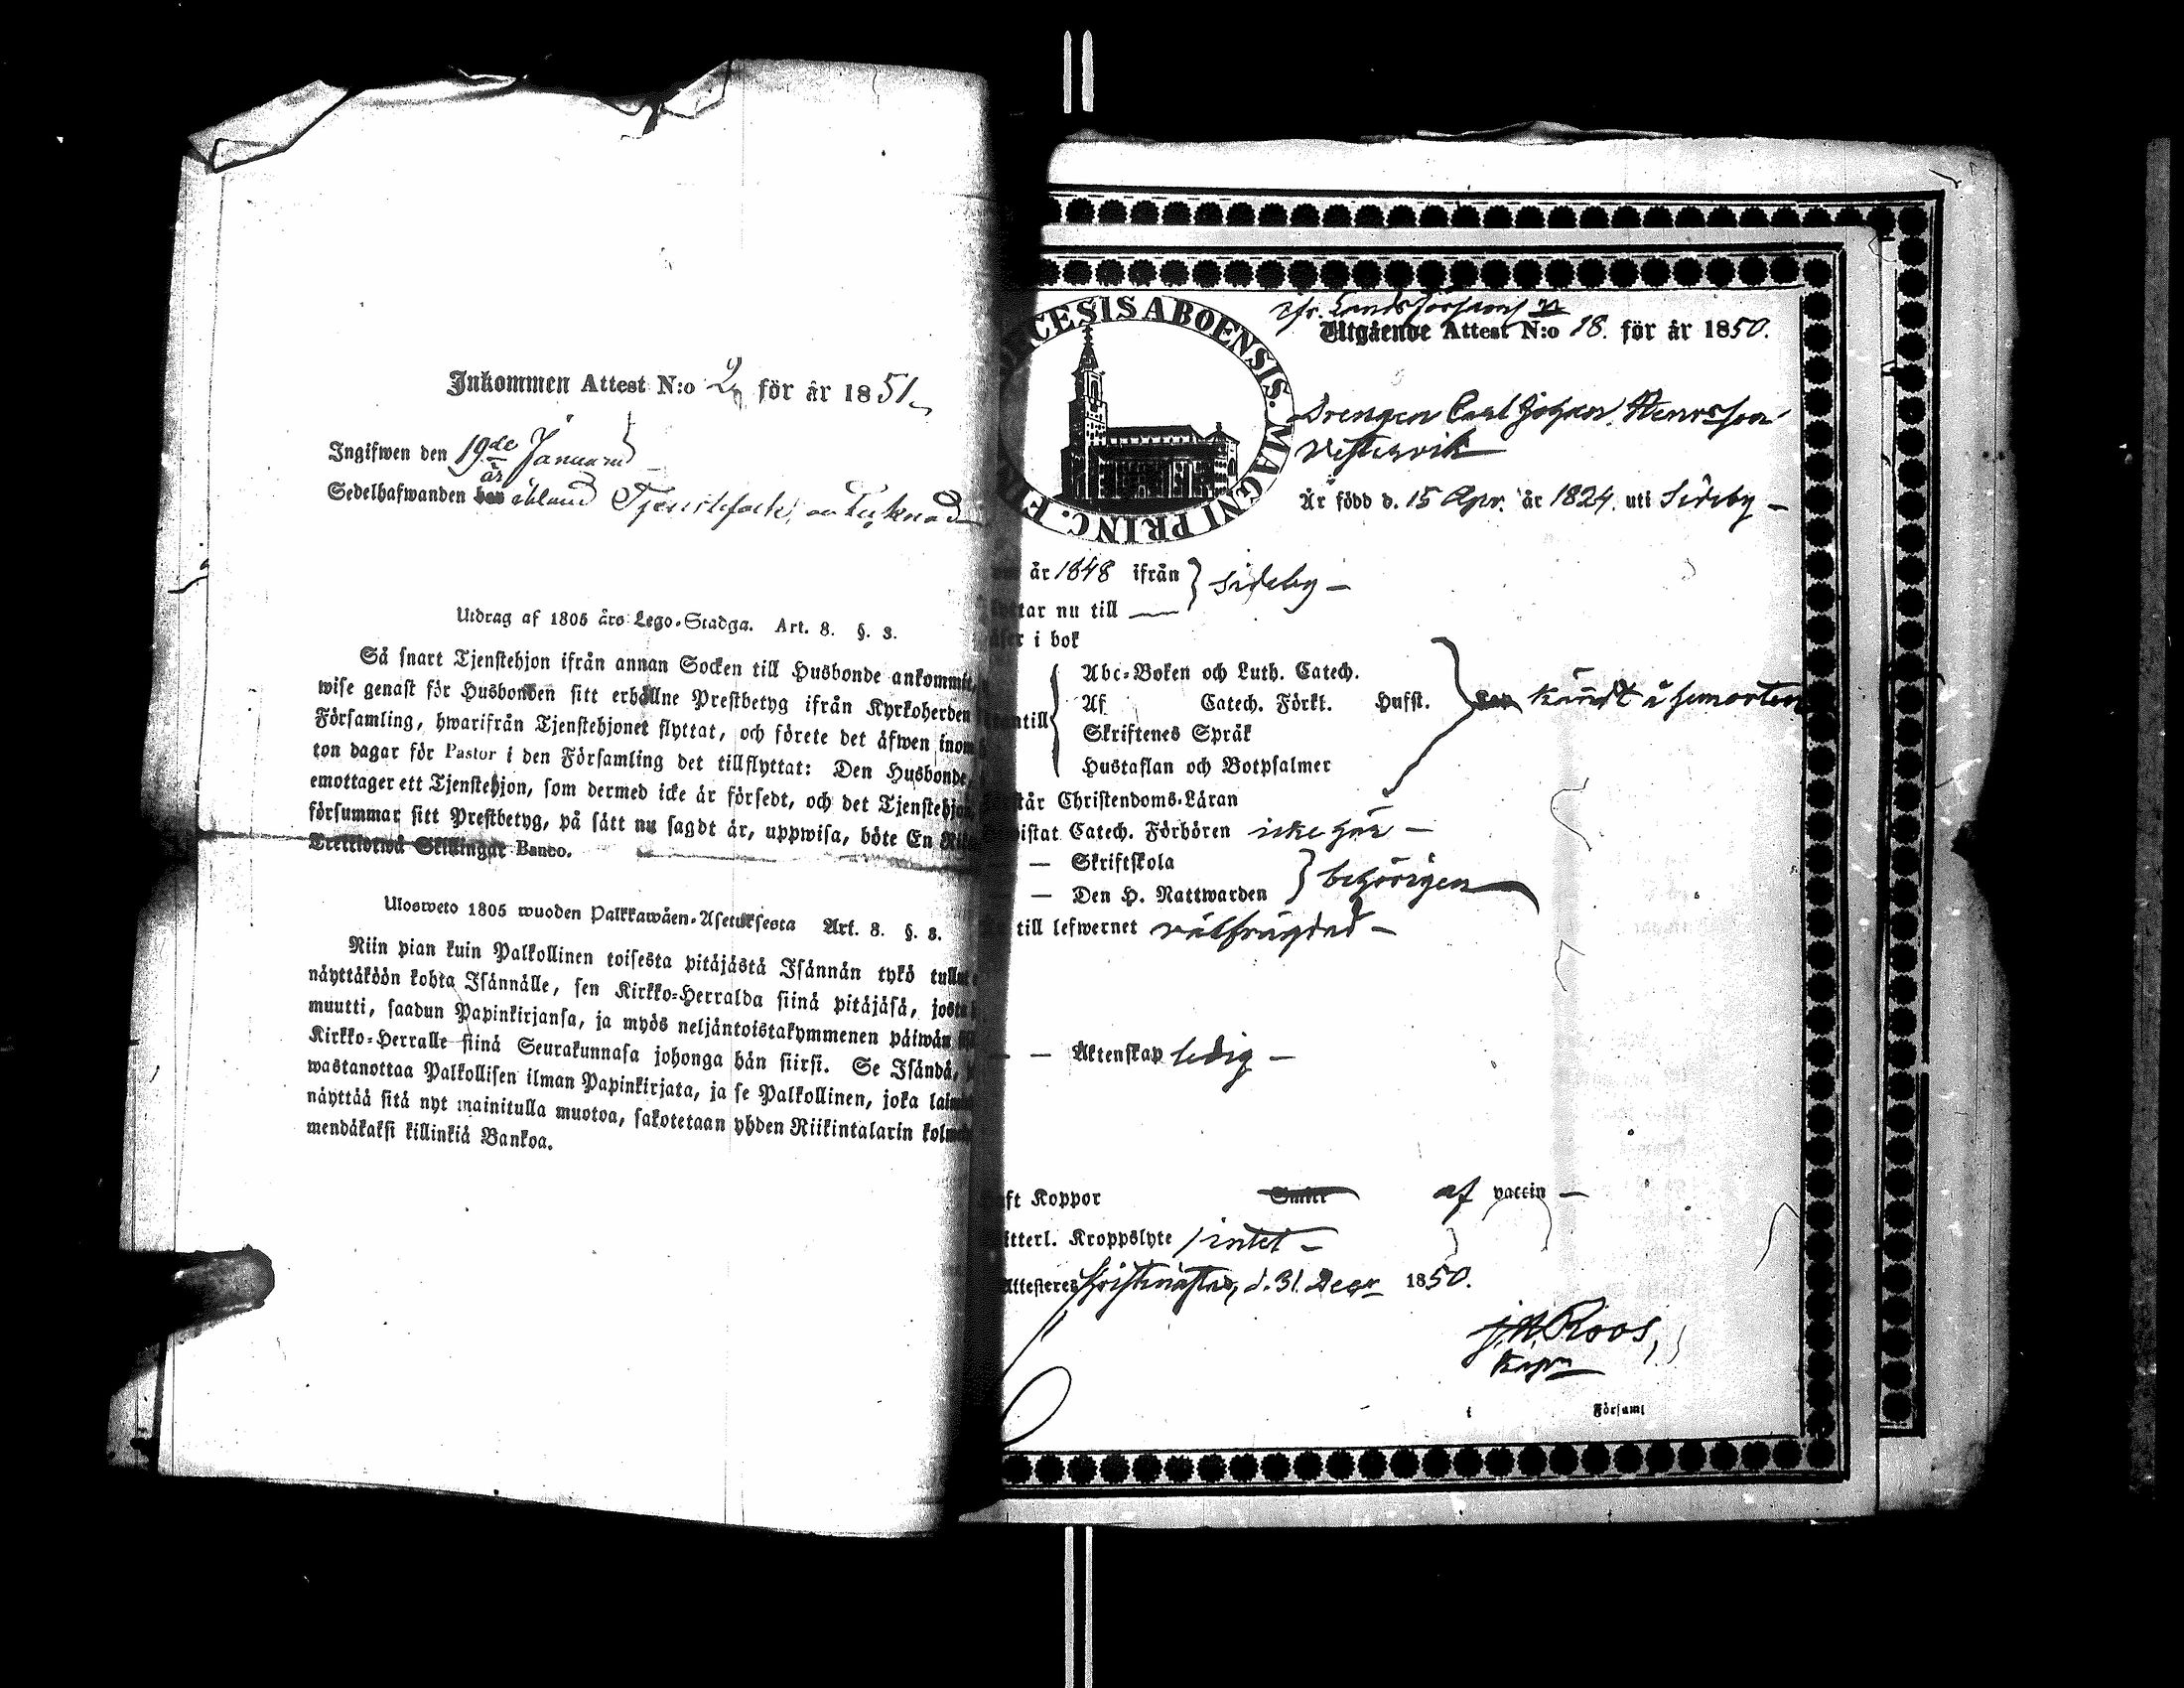 Inkommen Attest N:o 2 för år 1851
Ingifwen den 19de Januari
är
Sedelhafwanden ibland Tjenstefolk
Utdrag af 1805 års Lego-Stadga. Art. 8. §. 3.
Så snart Tjenstehjon ifrån annan Socken till Husbonde ankommit,
wise genast för Husbonden sitt erhållne Prestbetyg ifrån Kyrkoherden
Församling, hwarifrån Tjenstehjonet flyttat, och förete det äfwen inom
ton dagar för Pastor i den Församling det tillflyttat: Den Husbonde,
emottager ett Tjenstehjon, som dermed icke är försedt, och det Tjenstehjon,
försummar sitt Prestbetyg, på sätt nu sagdt är, uppwisa, böte En
Trettiotwå Skillingar Banco.
Ulosweto 1805 wuoden Palkkawäen-Asetuksesta Art. 8. §. 3.
Niin pian kuin Palkollinen toisesta pitäjästä Isännän tykö tullut
näyttäköön kohta Isännälle, sen Kirkko-Herralda siinä pitäjäsä, josta
muutti, saadun Papinkirjansa, ja myös neljäntoistakymmenen päiwän
Kirkko-Herralle siinä Seurakunnasa johonga hän siirsi. Se Isändä,
wastanottaa Palkollisen ilman Papinkirjata, ja se Palkollinen, joka
näyttää sitä nyt mainitulla muotoa, sakotetaan yhden Riikintalarin
mendäkaksi killinkiä Bankoa.
CESIS ABOENSIS. MAGNI PRINC. F
Utgående Attest N:o 18. för år 1850.
Drengen Carl Johan Henrsson
Vestervik
Är född d. 15 Apr. år 1824. uti Sideby
år 1848 ifrån } Sideby
tar nu till
i bok
Abc-Boken och Luth. Catech.
Af Catech. Förkl. Husst.
Skriftenes Språk
Hustaflan och Botpsalmer
står Christendoms-Läran
wistat Catech. Förhören icke här
— Skriftskola
— Den H. Nattwarden } behörigen
till lefwernet välfrägdad
— — Äktenskap ledig
ft Koppor af vaccin
itterl. Kroppslyte intet
Attesteres Kristinestad, d. 31 Decr 1850.
J. A. Roos,
Kapn
i Församl